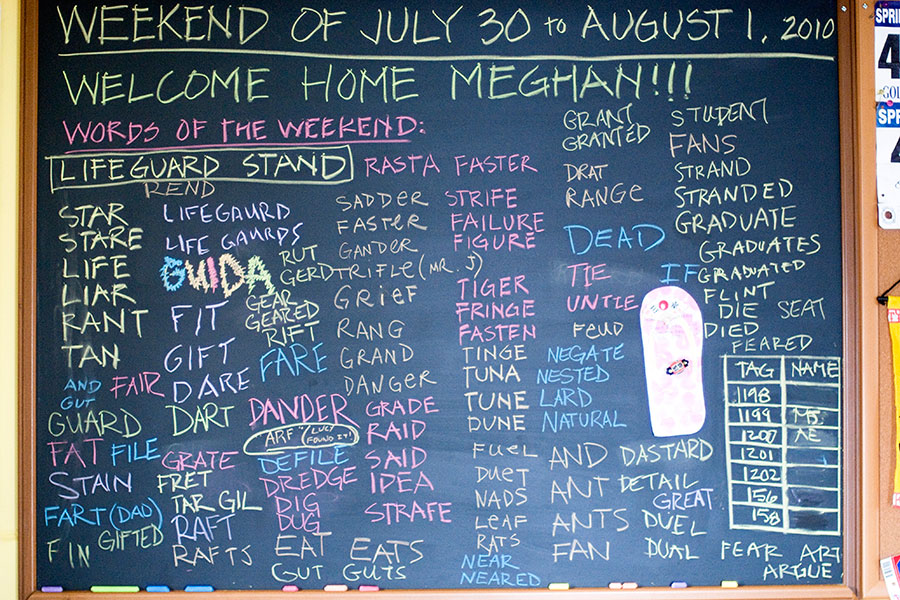 WEEKEND OF JULY 30 TO AUGUST 1, 2010
WELCOME HOME MEGHAN!!!
WORDS OF THE WEEKEND:
LIFEGUARD STAND
REND
STAR
STARE
LIFE
LIAR
RANT
TAN
AND
GUT
FAIR
GUARD
FAT
FILE
STAIN
FART (DAD)
FIN
GIFTED
LIFEGAURD
LIFE GAURDS
GUIDA
FIT
GIFT
DARE
DART
GRATE
FRET
TAR GIL
RAFT
RAFTS
RUT
GERD
GEAR
GEARED
RIFT
FARE
DANDER
"ARF" (LUCY
FOUND IT!)
DEFILE
DREDGE
DIG
DUG
EAT
GUT
RASTA FASTER
SADDER
FASTER
GANDER
TRIFLE (MR. J)
GRIEF
RANG
GRAND
DANGER
GRADE
RAID
SAID
IDEA
STRAFE
EATS
GUTS
STRIFE
FAILURE
FIGURE
TIGER
FRINGE
FASTEN
TINGE
TUNA
TUNE
DUNE
FUEL
DUET
NADS
LEAF
RATS
NEAR
NEARED
GRANT
GRANTED
DRAT
RANGE
DEAD
TIE
UNTIE
FEUD
NEGATE
NESTED
LARD
NATURAL
AND
ANT
ANTS
FAN
STUDENT
FANS
STRAND
STRANDED
GRADUATE
GRADUATES
IF
GRADUATED
FLINT
DIE
SEAT
DIED
FEARED
DASTARD
DETAIL
GREAT
DUEL
DUAL
TAG NAME
1198
1199 MS.
1200 AE
1201
1202
156
158
FEAR
ART
ARGUE
SPRI
4
GOL
SP